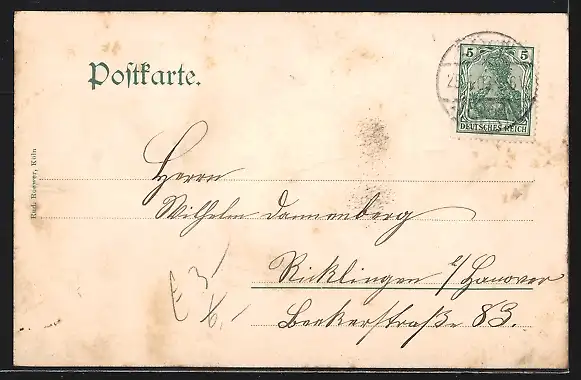 Postkarte.
5 5
DEUTSCHES REICH
Rud. Roemer, Köln
Herrn
Wilhelm Dannenberg
Ricklingen b/Hanover
Beekerstraße 83.